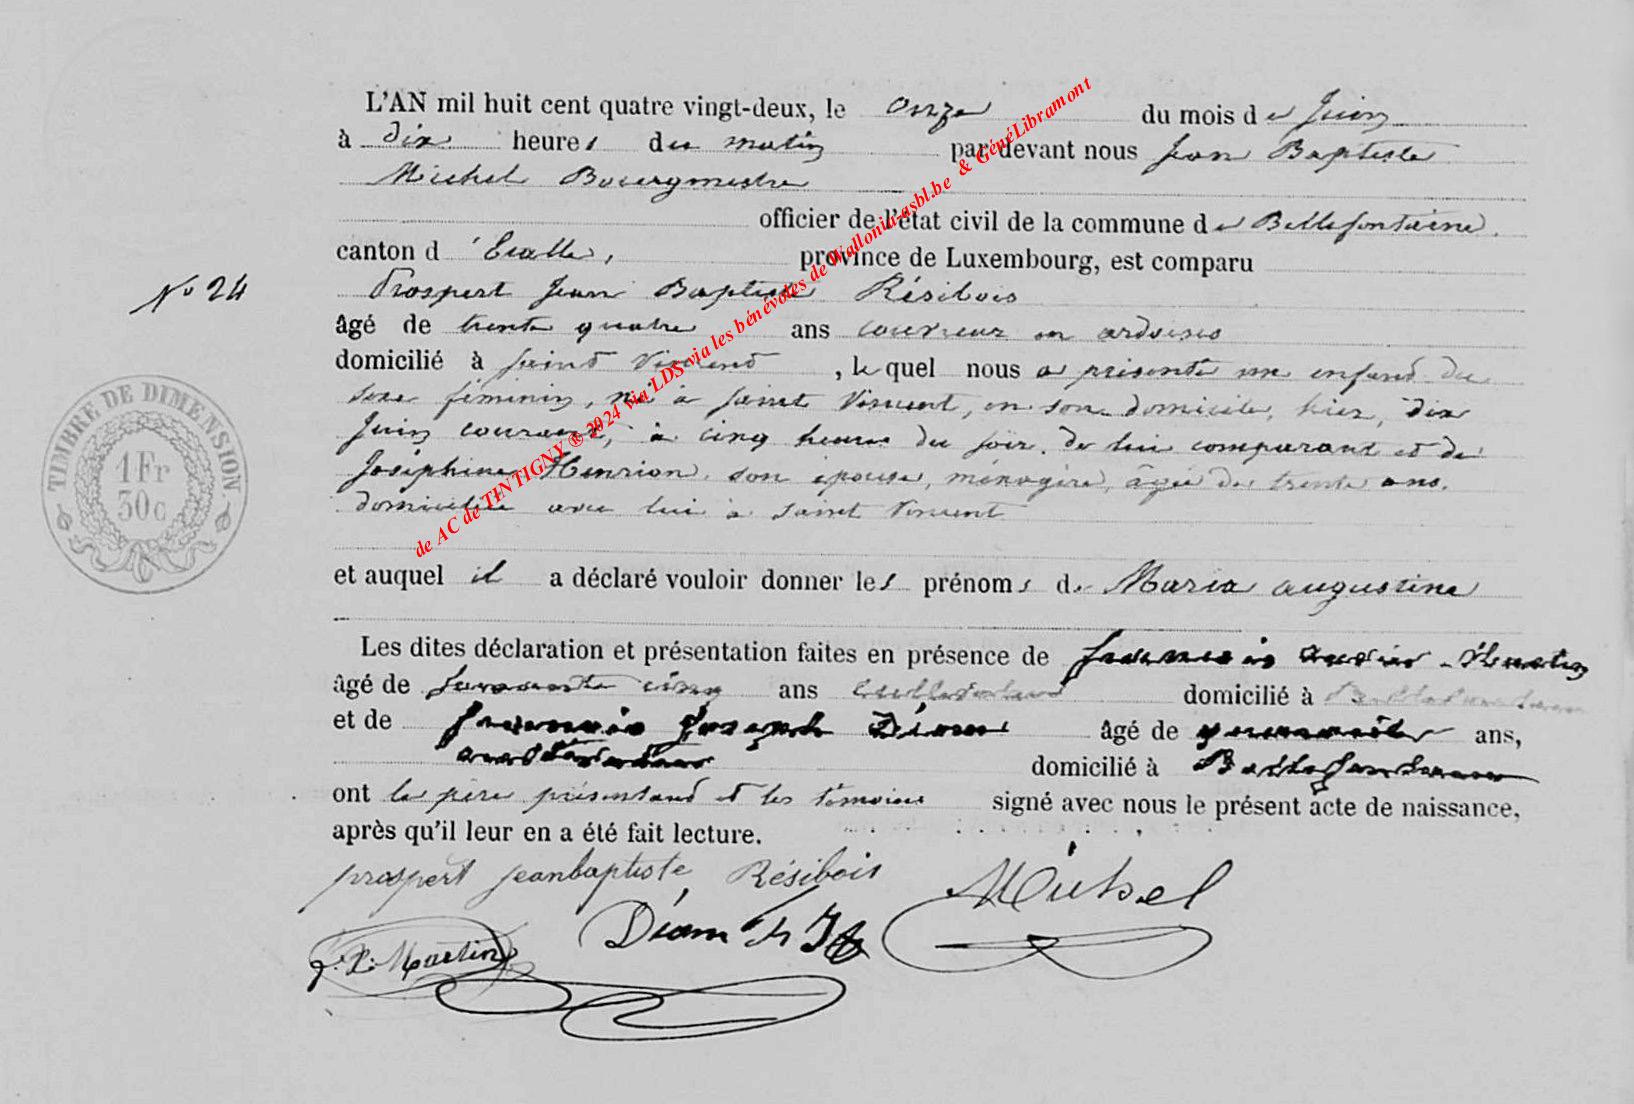 L'AN mil huit cent quatre vingt-deux, le onze du mois de Juin
à dix heures du matin par devant nous Jean Baptiste
Michel Bourgmestre
officier de l'état civil de la commune de Bellefontaine.
canton d'Etalle, province de Luxembourg, est comparu
N° 24
Prospert Jean Baptiste Résibois
âgé de trente quatre ans couvreur en ardoises
domicilié à Saint Vincent, lequel nous a présenté un enfant du
sexe féminin, né à Saint Vincent, en son domicile, hier, dix
Juin courant, à cinq heures du soir. de lui comparant et de
Joséphine Henrion, son épouse, ménagère, âgée de trente ans.
domiciliée avec lui à Saint Vincent
et auquel il a déclaré vouloir donner les prénoms de Maria Augustine
Les dites déclaration et présentation faites en présence de François Martin
âgé de cinq ans domicilié à
et de François Joseph Diam âgé de ans,
domicilié à Bellefontaine
ont le père présentant et les témoins signé avec nous le présent acte de naissance,
après qu'il leur en a été fait lecture.
prospert jeanbaptiste Résibois
Michel
Martin
Diam
TIMBRE DE DIMENSION
1 Fr
30c
de AC de TINTIGNY ® 2024 via LDS via les bénévoles de Wallonia-asbl.be & GénéLibramont